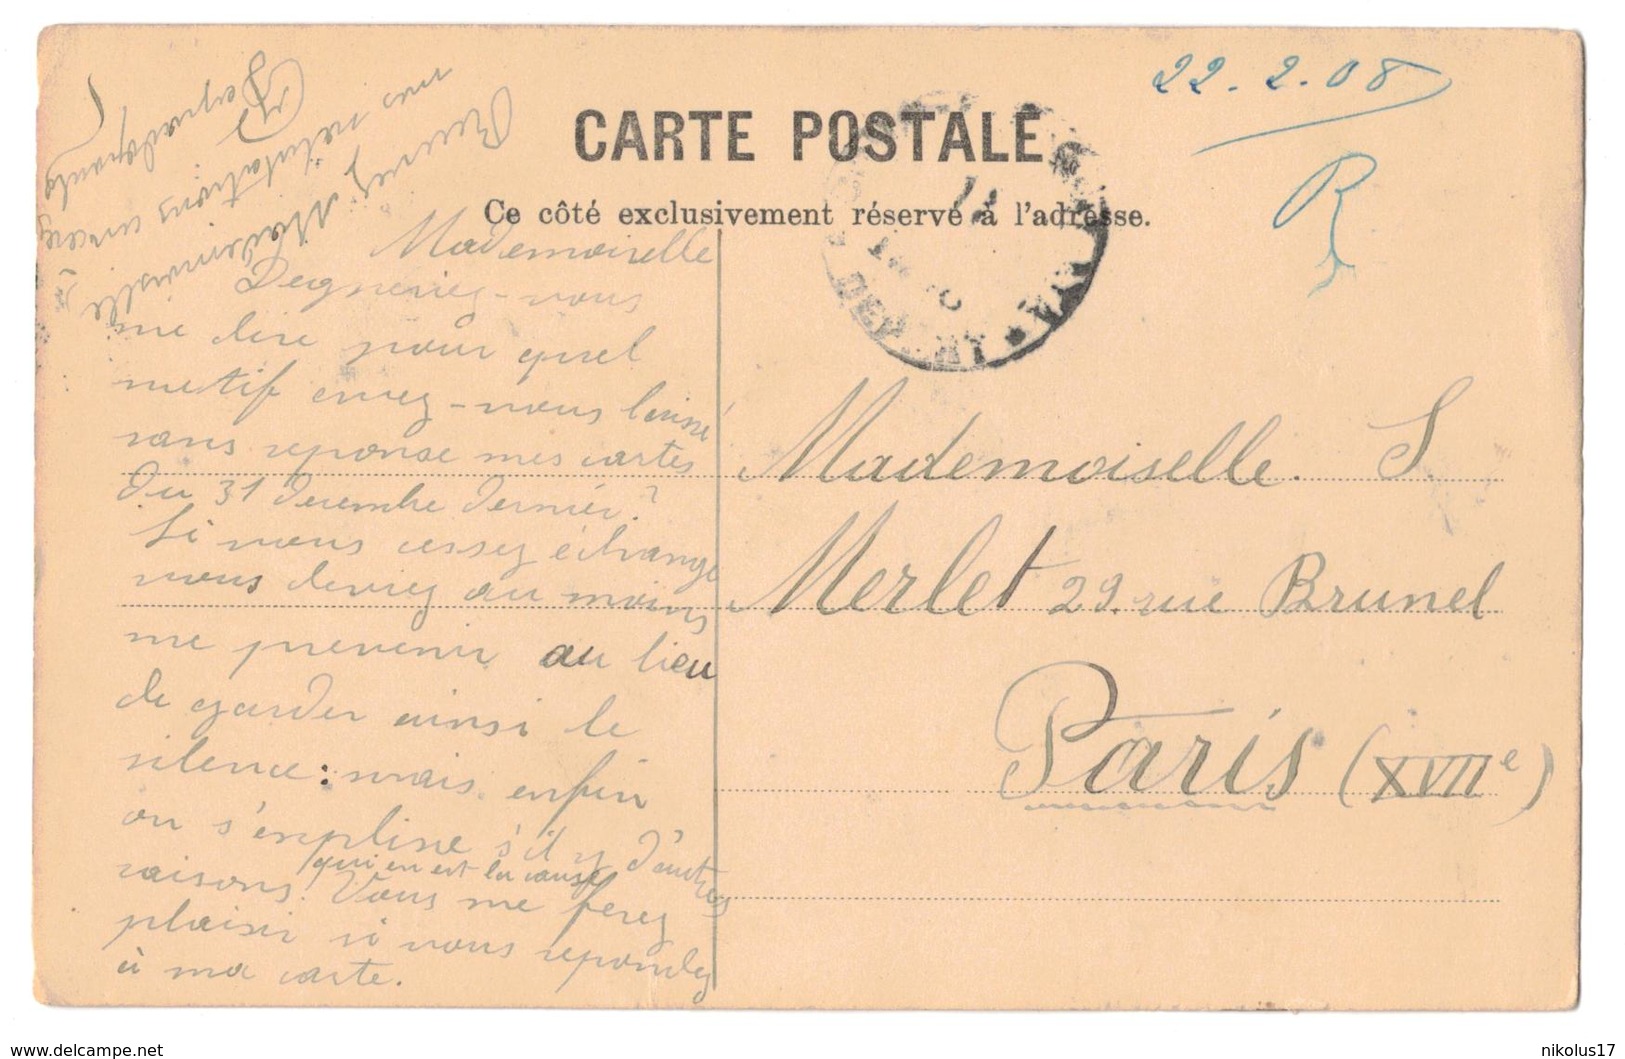 22.2.08
R
CARTE POSTALE
Ce côté exclusivement réservé à l'adresse.
Mademoiselle
Degneriez-vous
me dire pour quel
motif avez-vous laissé
sans reponse mes cartes
du 31 Decembre dernier?
Si vous cessez échange
vous devriez au moins
me prevenir au lieu
de garder ainsi le
silence: mais enfin
on s'explique s'il y d'autres
raisons qui en est la cause
Vous me ferez
plaisir si vous repondez
à ma carte.
Recevez Mademoiselle
mes salutations
Mademoiselle. S.
Merlet 29. rue Brunel
Paris (XVIIe)
www.delcampe.net
nikolus17